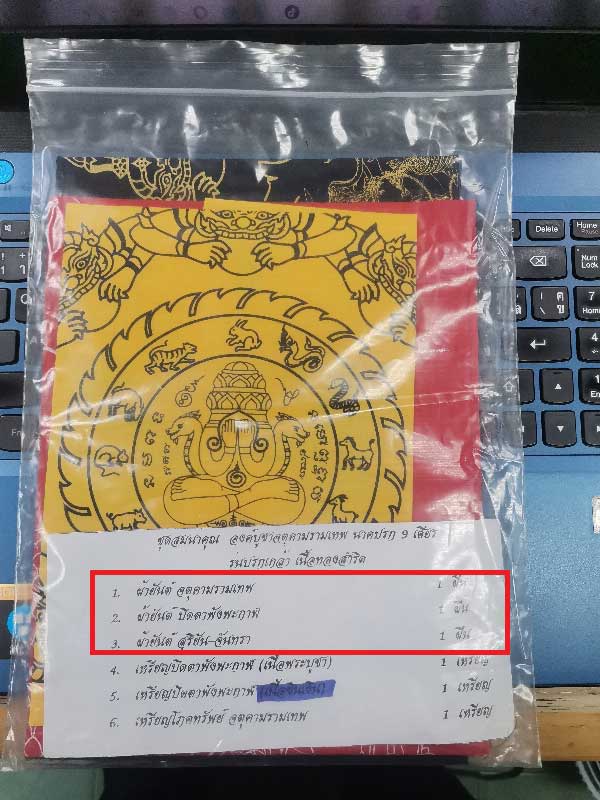 Delete
Home
Pause
Num
Lock
7
Home
ชุดสมนาคุณ องค์บูชาจตุคามรามเทพ นาคปรก 9 เศียร
รุ่นปรกเกล้า เนื้อทองสำริด
1. ผ้ายันต์ จตุคามรามเทพ 1 ผืน
2. ผ้ายันต์ ปิดตาพังพะกาฬ 1 ผืน
3. ผ้ายันต์ สุริยัน-จันทรา 1 ผืน
4. เหรียญปิดตาพังพะกาฬ (เนื้อพระบูชา) 1 เหรียญ
5. เหรียญปิดตาพังพะกาฬ 1 เหรียญ
6. เหรียญโภคทรัพย์ จตุคามรามเทพ 1 เหรียญ